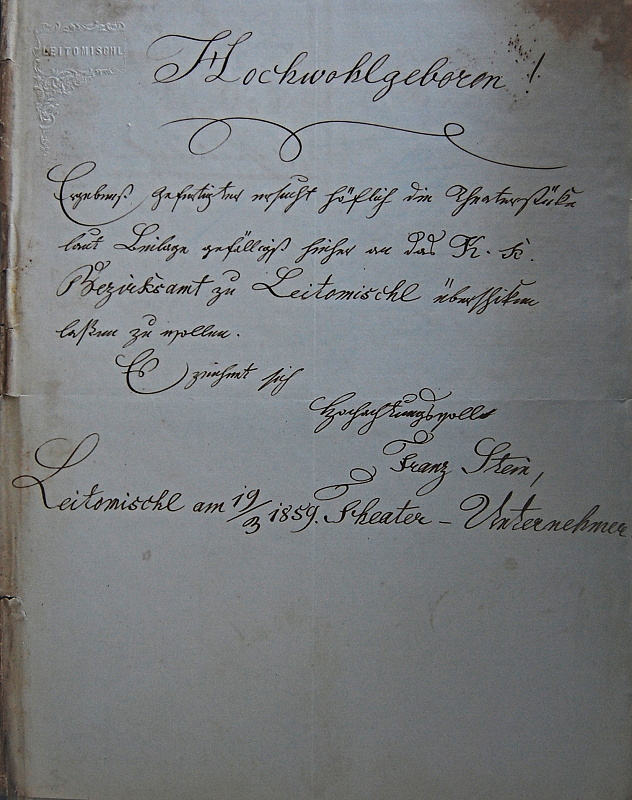 LEITOMISCHL
Hochwohlgeboren!
Ergebenst Gefertigter ersucht höflich die Theaterstüke
laut Beilage gefälligst hieher an das K. K.
Bezirksamt zu Leitomischl überschiken
laßen zu wollen.
Es zeichnet sich
Hochachtungsvollst
Franz Stein,
Leitomischl am 19/3 1859. Theater-Unternehmer